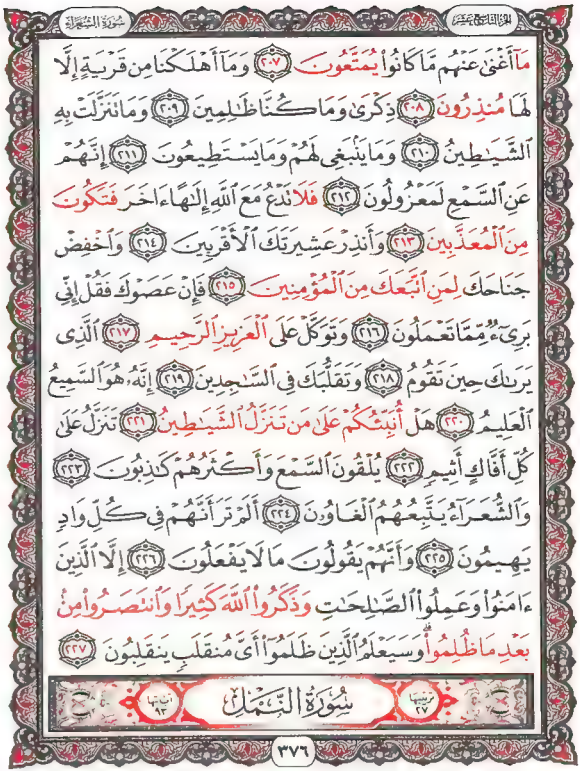 سُورَةُ الشُّعَرَاء
الجزء التاسع عشر
مَآ أَغْنَىٰ عَنْهُم مَّا كَانُوا۟ يُمَتَّعُونَ ٢٠٧ وَمَآ أَهْلَكْنَا مِن قَرْيَةٍ إِلَّا
لَهَا مُنذِرُونَ ٢٠٨ ذِكْرَىٰ وَمَا كُنَّا ظَٰلِمِينَ ٢٠٩ وَمَا تَنَزَّلَتْ بِهِ
ٱلشَّيَٰطِينُ ٢١٠ وَمَا يَنۢبَغِى لَهُمْ وَمَا يَسْتَطِيعُونَ ٢١١ إِنَّهُمْ
عَنِ ٱلسَّمْعِ لَمَعْزُولُونَ ٢١٢ فَلَا تَدْعُ مَعَ ٱللَّهِ إِلَٰهًا ءَاخَرَ فَتَكُونَ
مِنَ ٱلْمُعَذَّبِينَ ٢١٣ وَأَنذِرْ عَشِيرَتَكَ ٱلْأَقْرَبِينَ ٢١٤ وَٱخْفِضْ
جَنَاحَكَ لِمَنِ ٱتَّبَعَكَ مِنَ ٱلْمُؤْمِنِينَ ٢١٥ فَإِنْ عَصَوْكَ فَقُلْ إِنِّى
بَرِىٓءٌ مِّمَّا تَعْمَلُونَ ٢١٦ وَتَوَكَّلْ عَلَى ٱلْعَزِيزِ ٱلرَّحِيمِ ٢١٧ ٱلَّذِى
يَرَىٰكَ حِينَ تَقُومُ ٢١٨ وَتَقَلُّبَكَ فِى ٱلسَّٰجِدِينَ ٢١٩ إِنَّهُۥ هُوَ ٱلسَّمِيعُ
ٱلْعَلِيمُ ٢٢٠ هَلْ أُنَبِّئُكُمْ عَلَىٰ مَن تَنَزَّلُ ٱلشَّيَٰطِينُ ٢٢١ تَنَزَّلُ عَلَىٰ
كُلِّ أَفَّاكٍ أَثِيمٍ ٢٢٢ يُلْقُونَ ٱلسَّمْعَ وَأَكْثَرُهُمْ كَٰذِبُونَ ٢٢٣
وَٱلشُّعَرَآءُ يَتَّبِعُهُمُ ٱلْغَاوُۥنَ ٢٢٤ أَلَمْ تَرَ أَنَّهُمْ فِى كُلِّ وَادٍ
يَهِيمُونَ ٢٢٥ وَأَنَّهُمْ يَقُولُونَ مَا لَا يَفْعَلُونَ ٢٢٦ إِلَّا ٱلَّذِينَ
ءَامَنُوا۟ وَعَمِلُوا۟ ٱلصَّٰلِحَٰتِ وَذَكَرُوا۟ ٱللَّهَ كَثِيرًا وَٱنتَصَرُوا۟ مِنۢ
بَعْدِ مَا ظُلِمُوا۟ ۗ وَسَيَعْلَمُ ٱلَّذِينَ ظَلَمُوٓا۟ أَىَّ مُنقَلَبٍ يَنقَلِبُونَ ٢٢٧
ترتيبها ٢٧ سُورَةُ النَّمْل آياتها ٩٣
٣٧٦